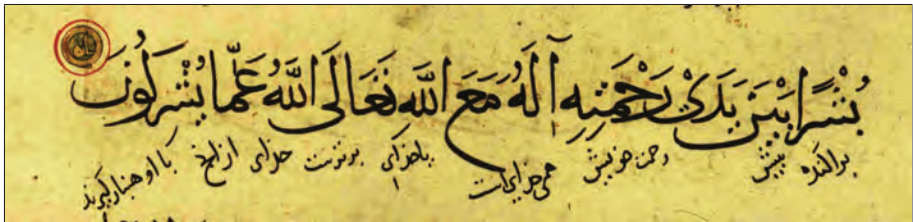 بُشْرًا بَيْنَ يَدَيْ رَحْمَتِهِ آلَهٌ مَعَ اللَّهِ تَعَالَى اللَّهُ عَمَّا يُشْرِكُونَ
براکنده پیش رحمت خویش همی خدایست با خدای برترست خدای از آنچ با او هنباز گیرند